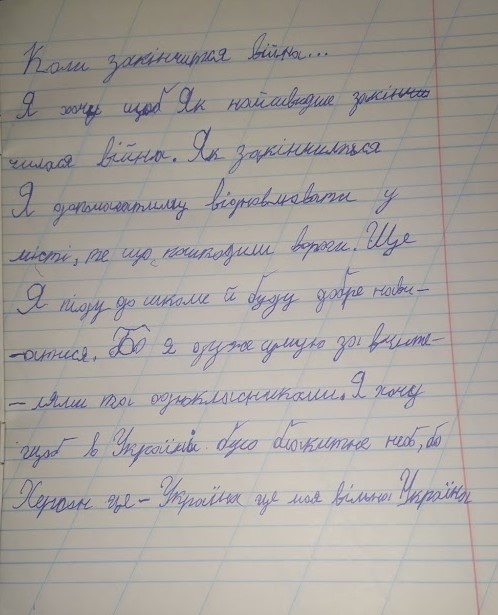 Коли закінчится війна...
Я хочу щоб Як найшвидше закін
чилася війна. Як закінчиться
Я допомагатиму відновлювати у
місті, те що пошкодили вороги. Ще
Я піду до школи й буду добре навч-
-атися. Бо я дуже сумую за вчите-
-лями та однокласниками. Я хочу
щоб в Україні було блакитне небо, бо
Херсон це - Україна це моя вільна Україна